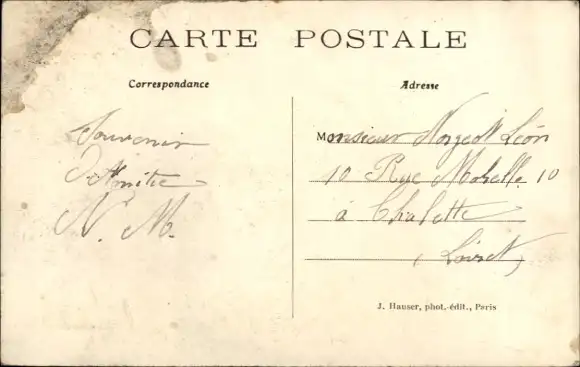 CARTE POSTALE
Correspondance
Adresse
Souvenir
d'Amitié
N. M.
Monsieur Norgeot Léon
10 Rue 10
à Chalette
(Loiret)
J. Hauser, phot.-édit., Paris